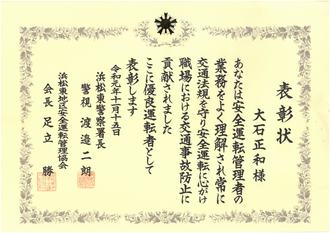 表彰状
大石正和様
あなたは安全運転管理者の
業務をよく理解され常に
交通法規を守り安全運転に心がけ
職場における交通事故防止に
貢献されました
ここに優良運転者として
表彰します
令和元年十一月十五日
浜松東警察署長
警視 渡邉二朗
浜松東地区安全運転管理協会
会長 足立 勝